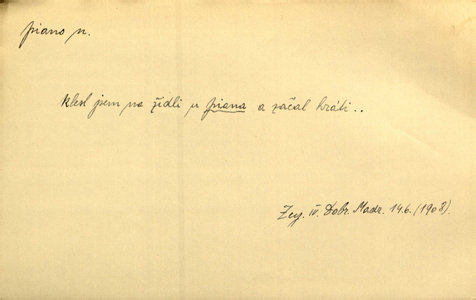 piano n.
klesl jsem na židli u piana a začal hráti..
Zey. IV. Dobr. Madr. 146. (1908).